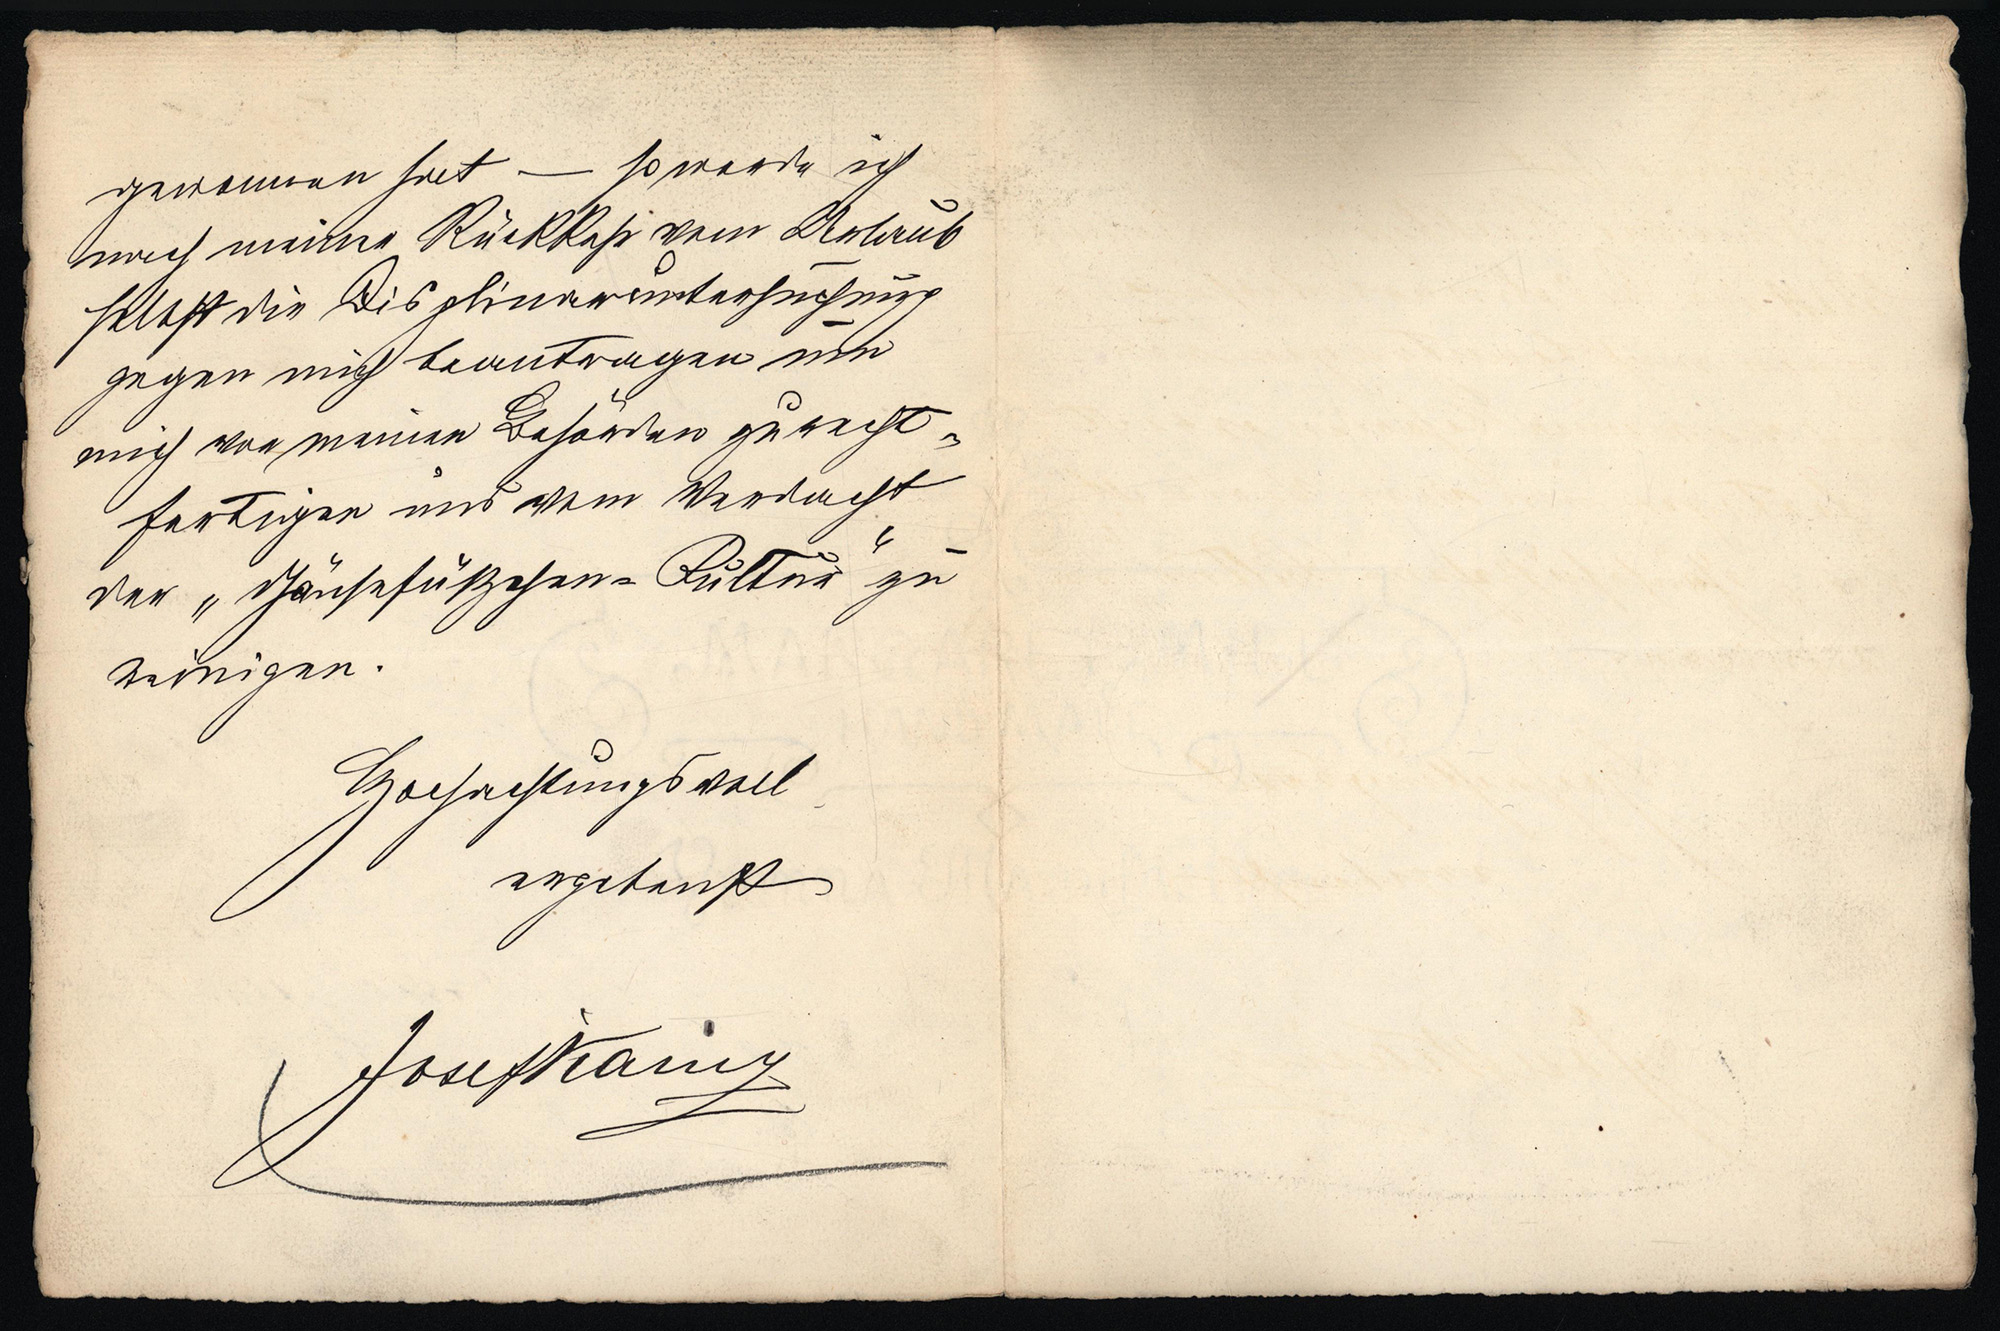 gewonnen hat — so werde ich
nach meiner Rückkehr vom Urlaub
selbst die Displinaruntersuchung
gegen mich beantragen um
mich vor meinen Behörden zu recht-
fertigen und vom Verdacht
der „Gänsefüßchen-Cultur“ zu
reinigen.
Hochachtungsvoll
ergebenst
Josef Kainz